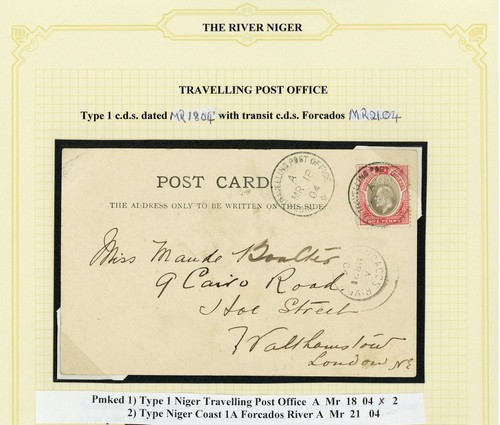 THE RIVER NIGER
TRAVELLING POST OFFICE
Type 1 c.d.s. dated MR 18 04 with transit c.d.s. Forcados MR 21 04
TRAVELLING POST OFFICE
A
MR 18
04
POST CARD
THE ADDRESS ONLY TO BE WRITTEN ON THIS SIDE.
ONE PENNY
Miss Maude Boulter
9 Cairo Road
Hoe Street
Walthamstow
London NE
FORCADOS RIVER
A
MR 21
04
Pmked 1) Type 1 Niger Travelling Post Office A Mr 18 04 x 2
2) Type Niger Coast 1A Forcados River A Mr 21 04